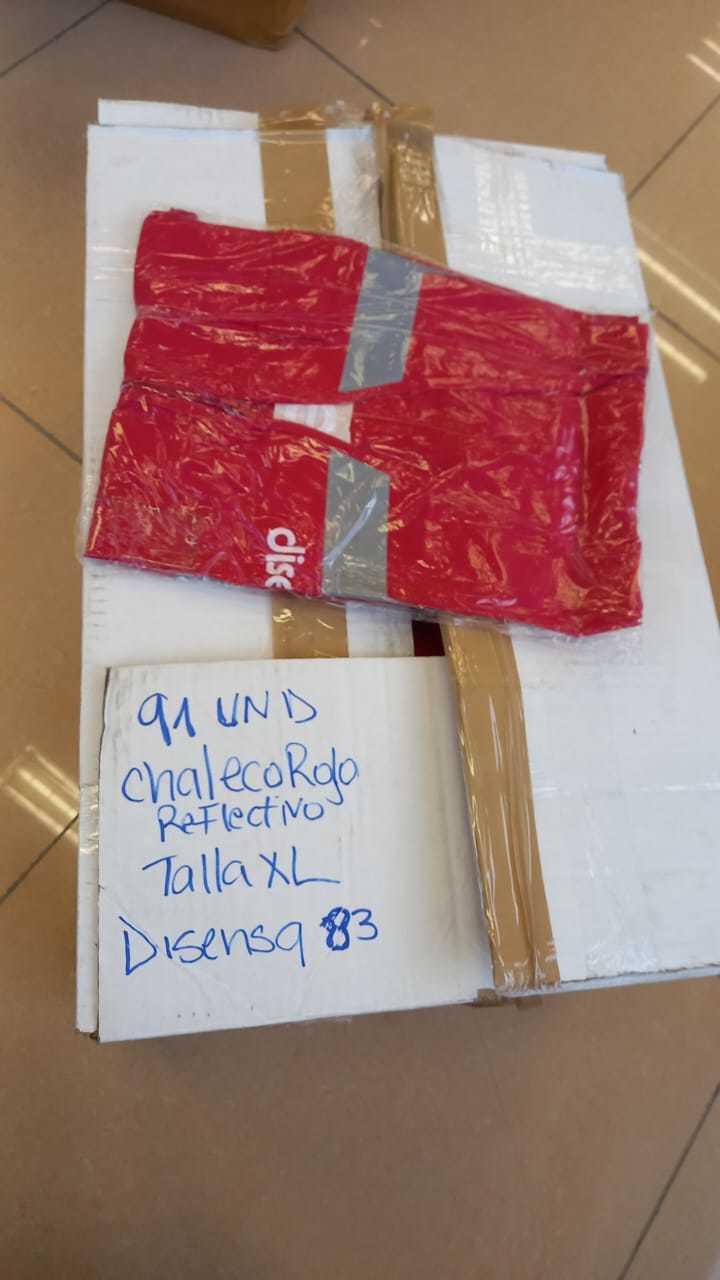 dise
91 UND
chaleco Rojo
Reflectivo
Talla XL
Disensa 83